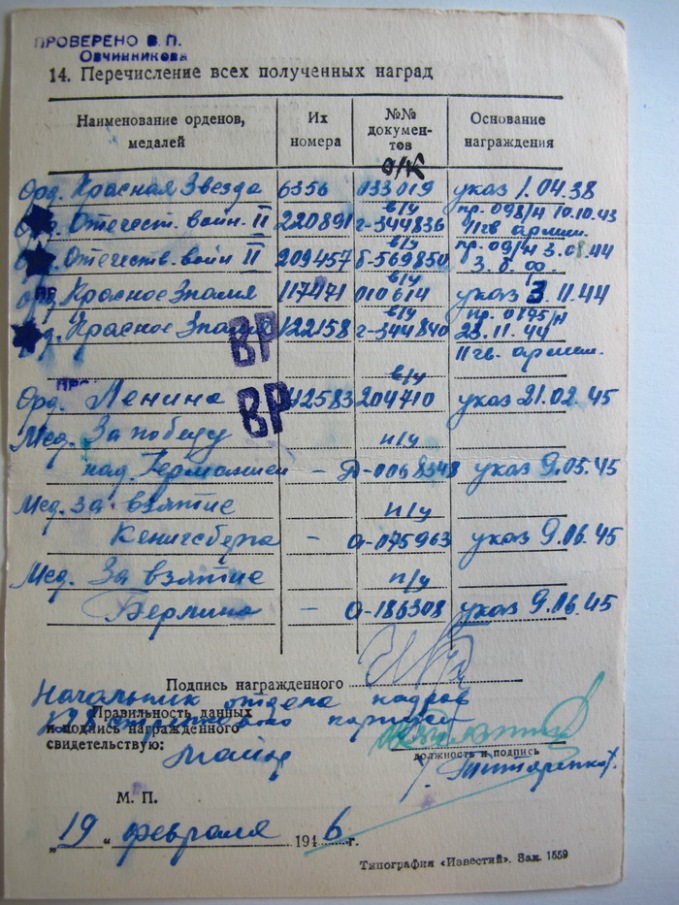 ПРОВЕРЕНО В. П.
Овчинникова
14. Перечисление всех полученных наград
Наименование орденов, медалей Их номера №№ документов Основание награждения
о/к
Орд. Красная Звезда 6356 033019 указ 1.04.38
в/у пр. 098/н 10.10.43
Отечест. войн. II 220891 г-344836 11 гв армии.
в/у пр. 09/н 3.08.44
Отечеств. войн II 209457 б-569850 3. б. ф.
в/у
Красное Знамя 117471 010614 указ 3.11.44
в/у пр. 0175/н
Красное Знамя 122158 г-344840 23.11.44
ВР 11 гв. армии.
в/у
Орд. Ленина 42583 204710 указ 21.02.45
ВР
Мед. За победу п/у
над Германией - 0068348 указ 9.05.45
Мед. За взятие п/у
Кенигсберга - а-075963 указ 9.06.45
Мед. За взятие п/у
Берлина - а-186308 указ 9.06.45
Подпись награжденного
Начальник отдела кадров
Правильность данных
и подпись награжденного
стрелкового корпуса
свидетельствую:
майор
должность и подпись
М. П.
„19" февраля 1946 г.
Типография «Известий». Зак. 1559